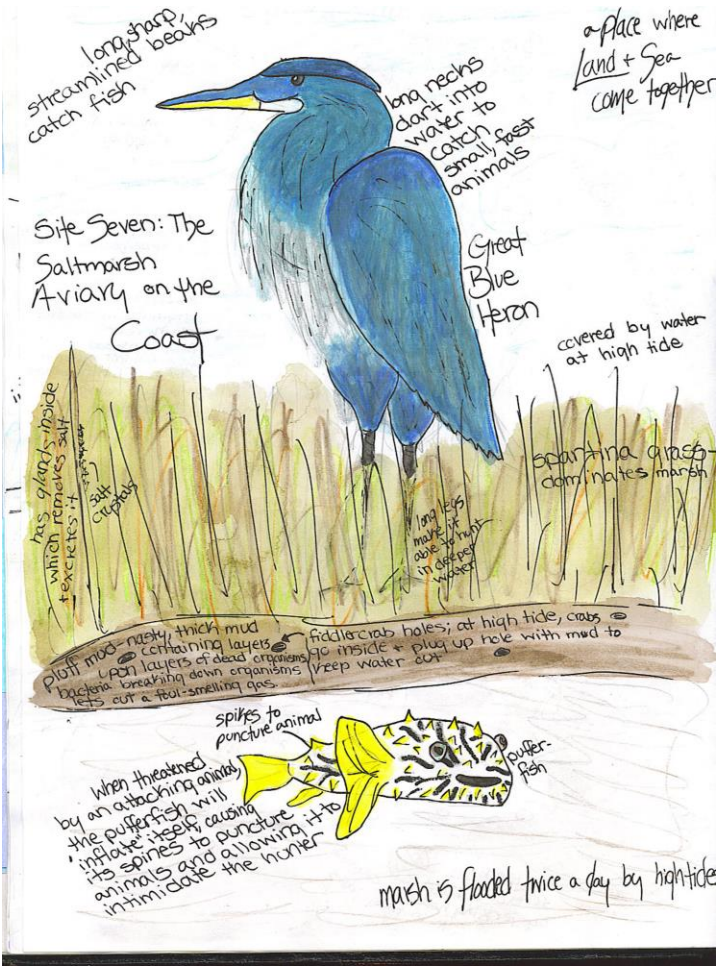 long, sharp,
streamlined beaks
catch fish
a place where
Land + Sea
come together
long necks
dart into
water to
catch
small, fast
animals
Site Seven: The
Saltmarsh
Aviary on the
Coast
Great
Blue
Heron
covered by water
at high tide
has glands inside
which removes salt
+ excretes it
salt
crystals
spartina grass-
dominates marsh
long legs
make it
able to hunt
in deeper
water
pluff mud-nasty, thick mud
containing layers
upon layers of dead organisms
bacteria breaking down organisms
lets out a foul-smelling gas.
fiddlercrab holes; at high tide, crabs
go inside + plug up hole with mud to
keep water out
spikes to
puncture animal
puffer-
fish
when threatened
by an attacking animal,
the pufferfish will
'inflate' itself, causing
its spines to puncture
animals and allowing it to
intimidate the hunter
marsh is flooded twice a day by high tides